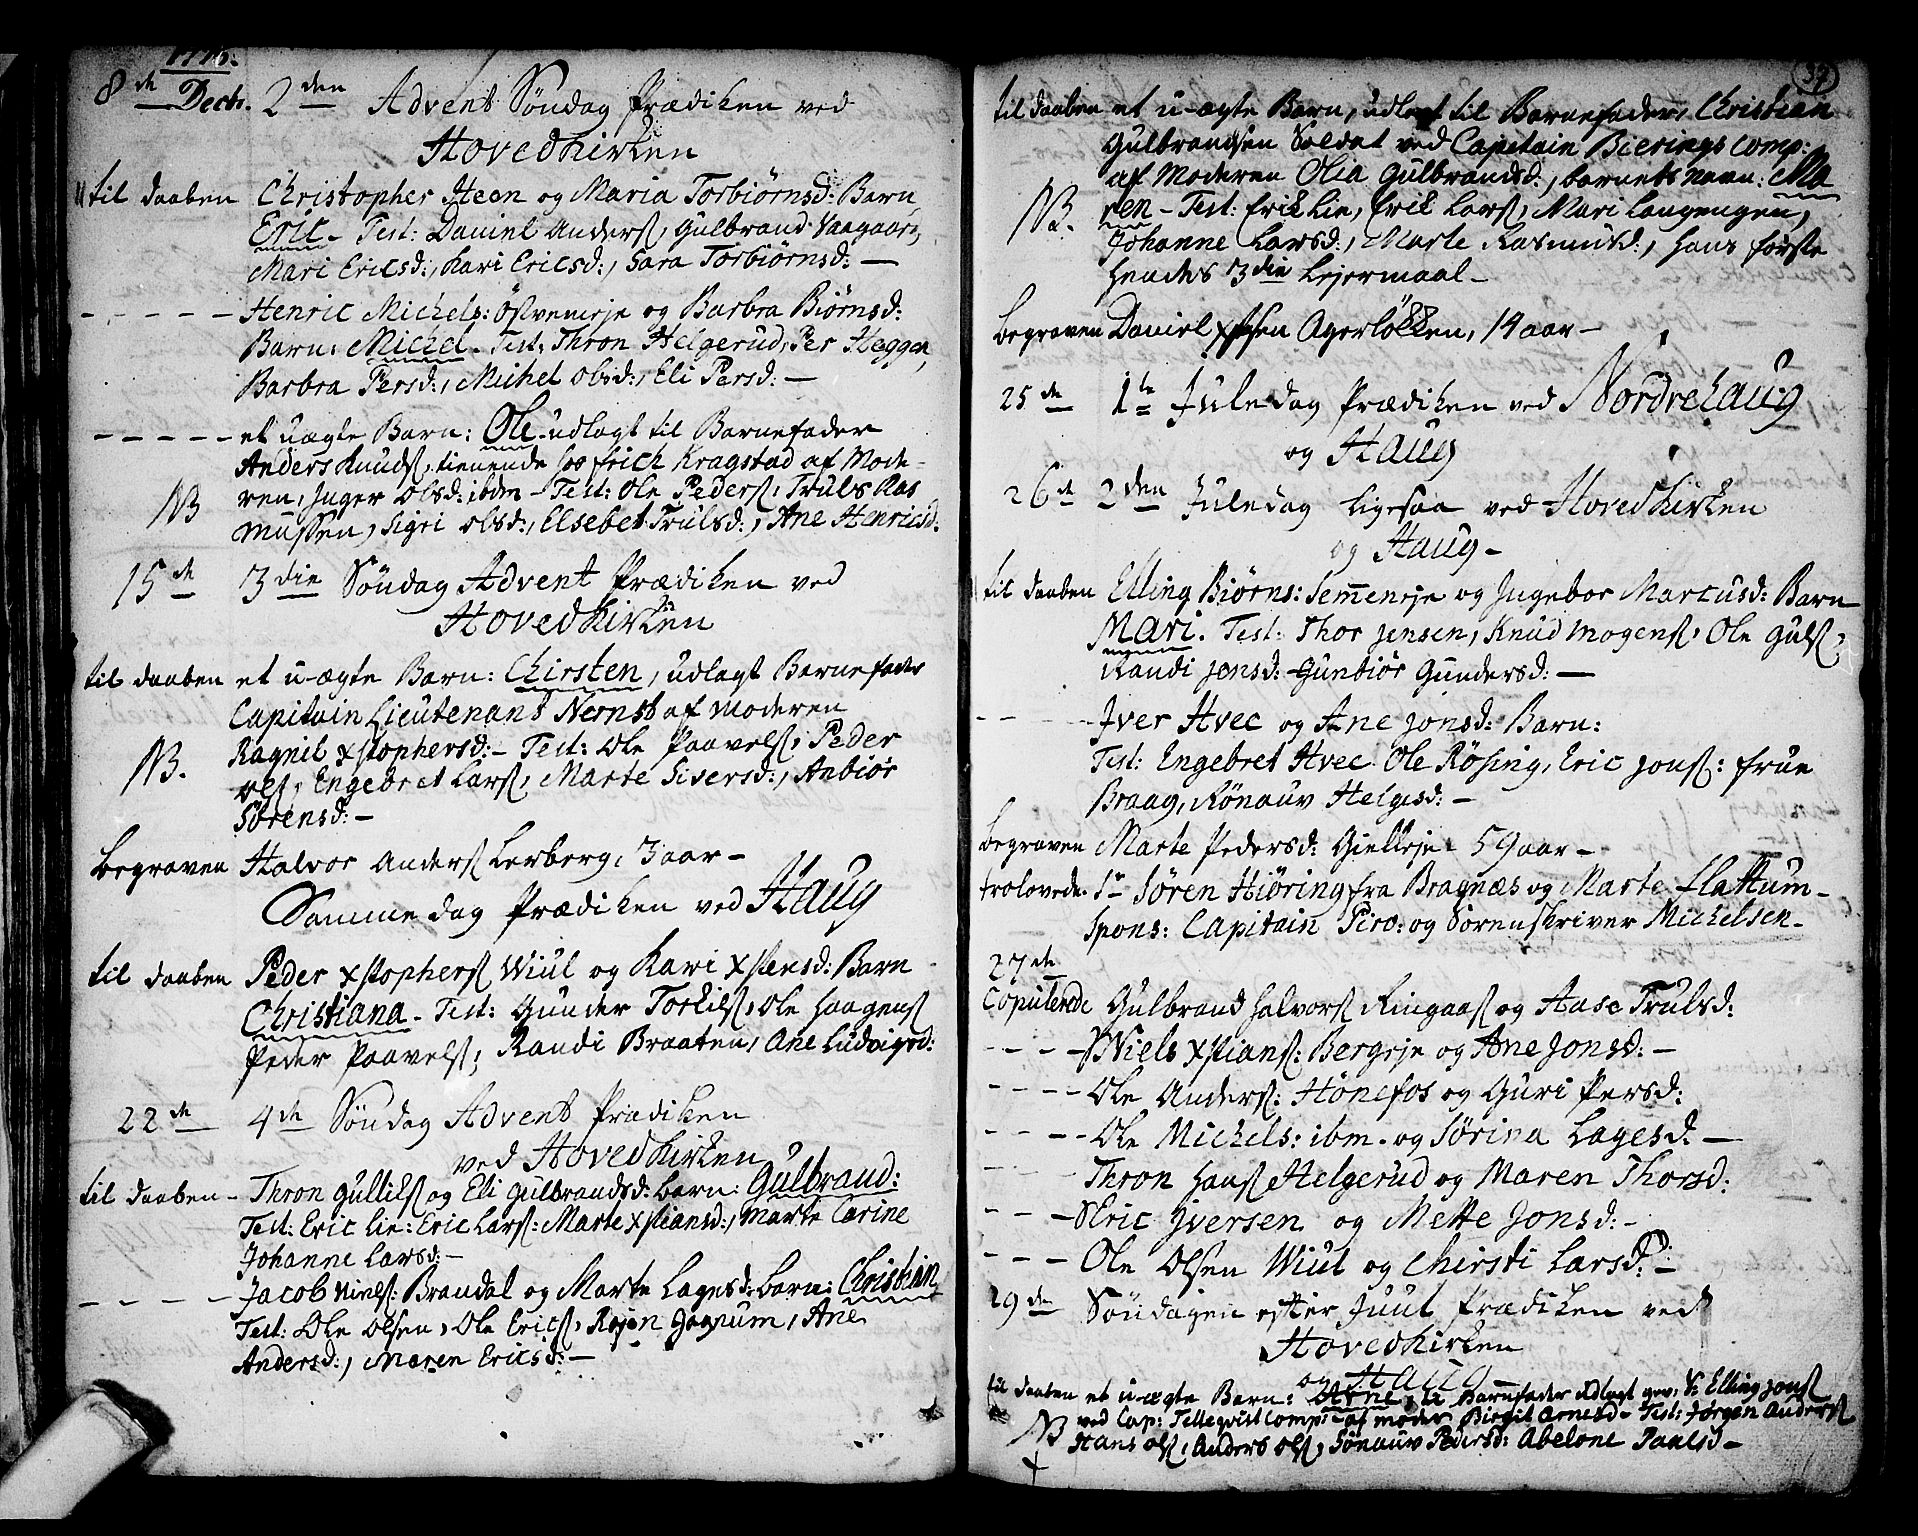 8de Decb. 2den Advent Søndag Prædiken ved
Hovedkirken
til daaben Christopher Steen og Maria Torbiørnsd: Barn
Eric - Test: Daniel Anders, Gulbrand Vaagaard,
Mari Ericsd:, Kari Ericsd:, Sara Torbiørnsd: -
Henric Michels: Østveneje og Barbra Biørnsd:
Barn: Michel - Test: Thron Helgerud, Per Heggen,
Barbra Persd:, Michel Olsd:, Eli Persd: -
et uægte Barn: Ole - udlagt til Barnefader
Anders Knuds, tienende hos Erich Kragstad af Mode-
NB ren, Inger Olsd: ibdm - Test: Ole Peders, Truls Ras
mussen, Sigri Olsd:, Elsebet Trulsd:, Ane Henricsd.
15de 3die Søndag Advent Prædiken ved
Hovedkirken
til daaben et u-ægte Barn: Chirsten, udlagt Barnefader
Capitain Lieutenant Nernst af Moderen
NB. Ragnil Xstophersd: - Test: Ole Paavels, Peder
Ols, Engebret Lars, Marte Siversd:, Anbiør
Sørensd: -
begraven Halvor Anders Lerberg, 3 aar -
Samme dag Prædiken ved Haug
til daaben Peder Xstophers Wiul og Kari Xstensd: Barn
Christiana - Test: Gunder Torkils, Ole Haagens
Peder Paavels, Randi Braaten, Ane Ludvigsd:
22de 4de Søndag Advent Prædiken
ved Hovedkirken
til daaben - Thron Gulliks og Eli Gulbrandsd: barn: Gulbrand:
Test: Eric Lie: Eric Lars: Marte Xstiansd:, Marte Carine
Johanne Larsd: -
Jacob Niels: Brandal og Marte Lagesd: barn: Christian
Test: Ole Olsen, Ole Erics, Ane
Andersd:, Maren Ericsd: -
37
til daaben et u-ægte Barn, udlagt til Barnefader, Christian
Gulbrandsen Soldat ved Capitain Bierings Comp:
af Moderen Olia Gulbrandsd:, barnets navn: Ma
NB. ren - Test: Erik Lie, Erik Lars, Mari Langengen,
Johanne Larsd:, Marte Rasmusd:, hans første
hendes 3die Lejermaal -
begraven Daniel Xstsen Agerløkken, 14 aar -
25de 1te Juledag Prædiken ved Nordrehaug
og Haug
26de 2den Juledag ligesaa ved Hovedkirken
og Haug -
til daaben Elling Biørns: Semeneje og Ingebor Marcusd: Barn
Mari. Test: Thor Jensen, Knud Mogens, Ole Guls,
Randi Jensd: Gunbiør Gundersd: -
Iver Hvec og Ane Jonsd: Barn:
Test: Engebret Hvec Ole Røsing, Eric Jons: Frue
Braag, Rønauv Helgesd: -
begraven Marte Pedersd: Gielleje 59 aar -
trolovede Sr Søren Hiøring fra Bragnæs og Marte Flattum -
Spons: Capitain Piro: og Sorenskriver Michelsen -
27de
Copulerede Gulbrand Halvors Ringaas og Aase Trulsd:
Niels Xstians: Bergeje og Ane Jonsd: -
Ole Anders: Hønefos og Guri Persd:
Ole Michels: ibm - og Sørina Lagesd. -
Thron Hans Helgerud og Maren Thorsd:
Eric Iversen og Mette Jonsd: -
Ole Olsen Wiul og Chirsti Larsd: -
29de Søndagen efter Juul Prædiken ved
Hovedkirken
og Haug
til daaben et u-ægte Barn: Arne, til Barnefader udlagt gev: S: Elling Jons
NB ved Cap: Tellequist Comp: af moder Birgit Arnesd - Test: Jørgen Anders
Hans Ols, Anders Ols, Sønauv Pedersd: Abelone Paulsd -